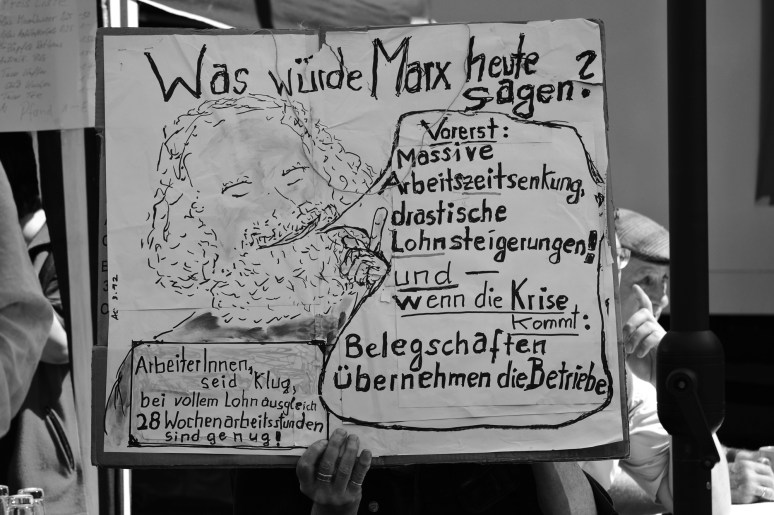 Was würde Marx heute
sagen?
Vorerst:
Massive
Arbeitszeitsenkung,
drastische
Lohnsteigerungen!
und —
wenn die Krise
kommt:
Belegschaften
übernehmen die Betriebe
ArbeiterInnen,
seid klug,
bei vollem Lohnausgleich
28 Wochenarbeitsstunden
sind genug!